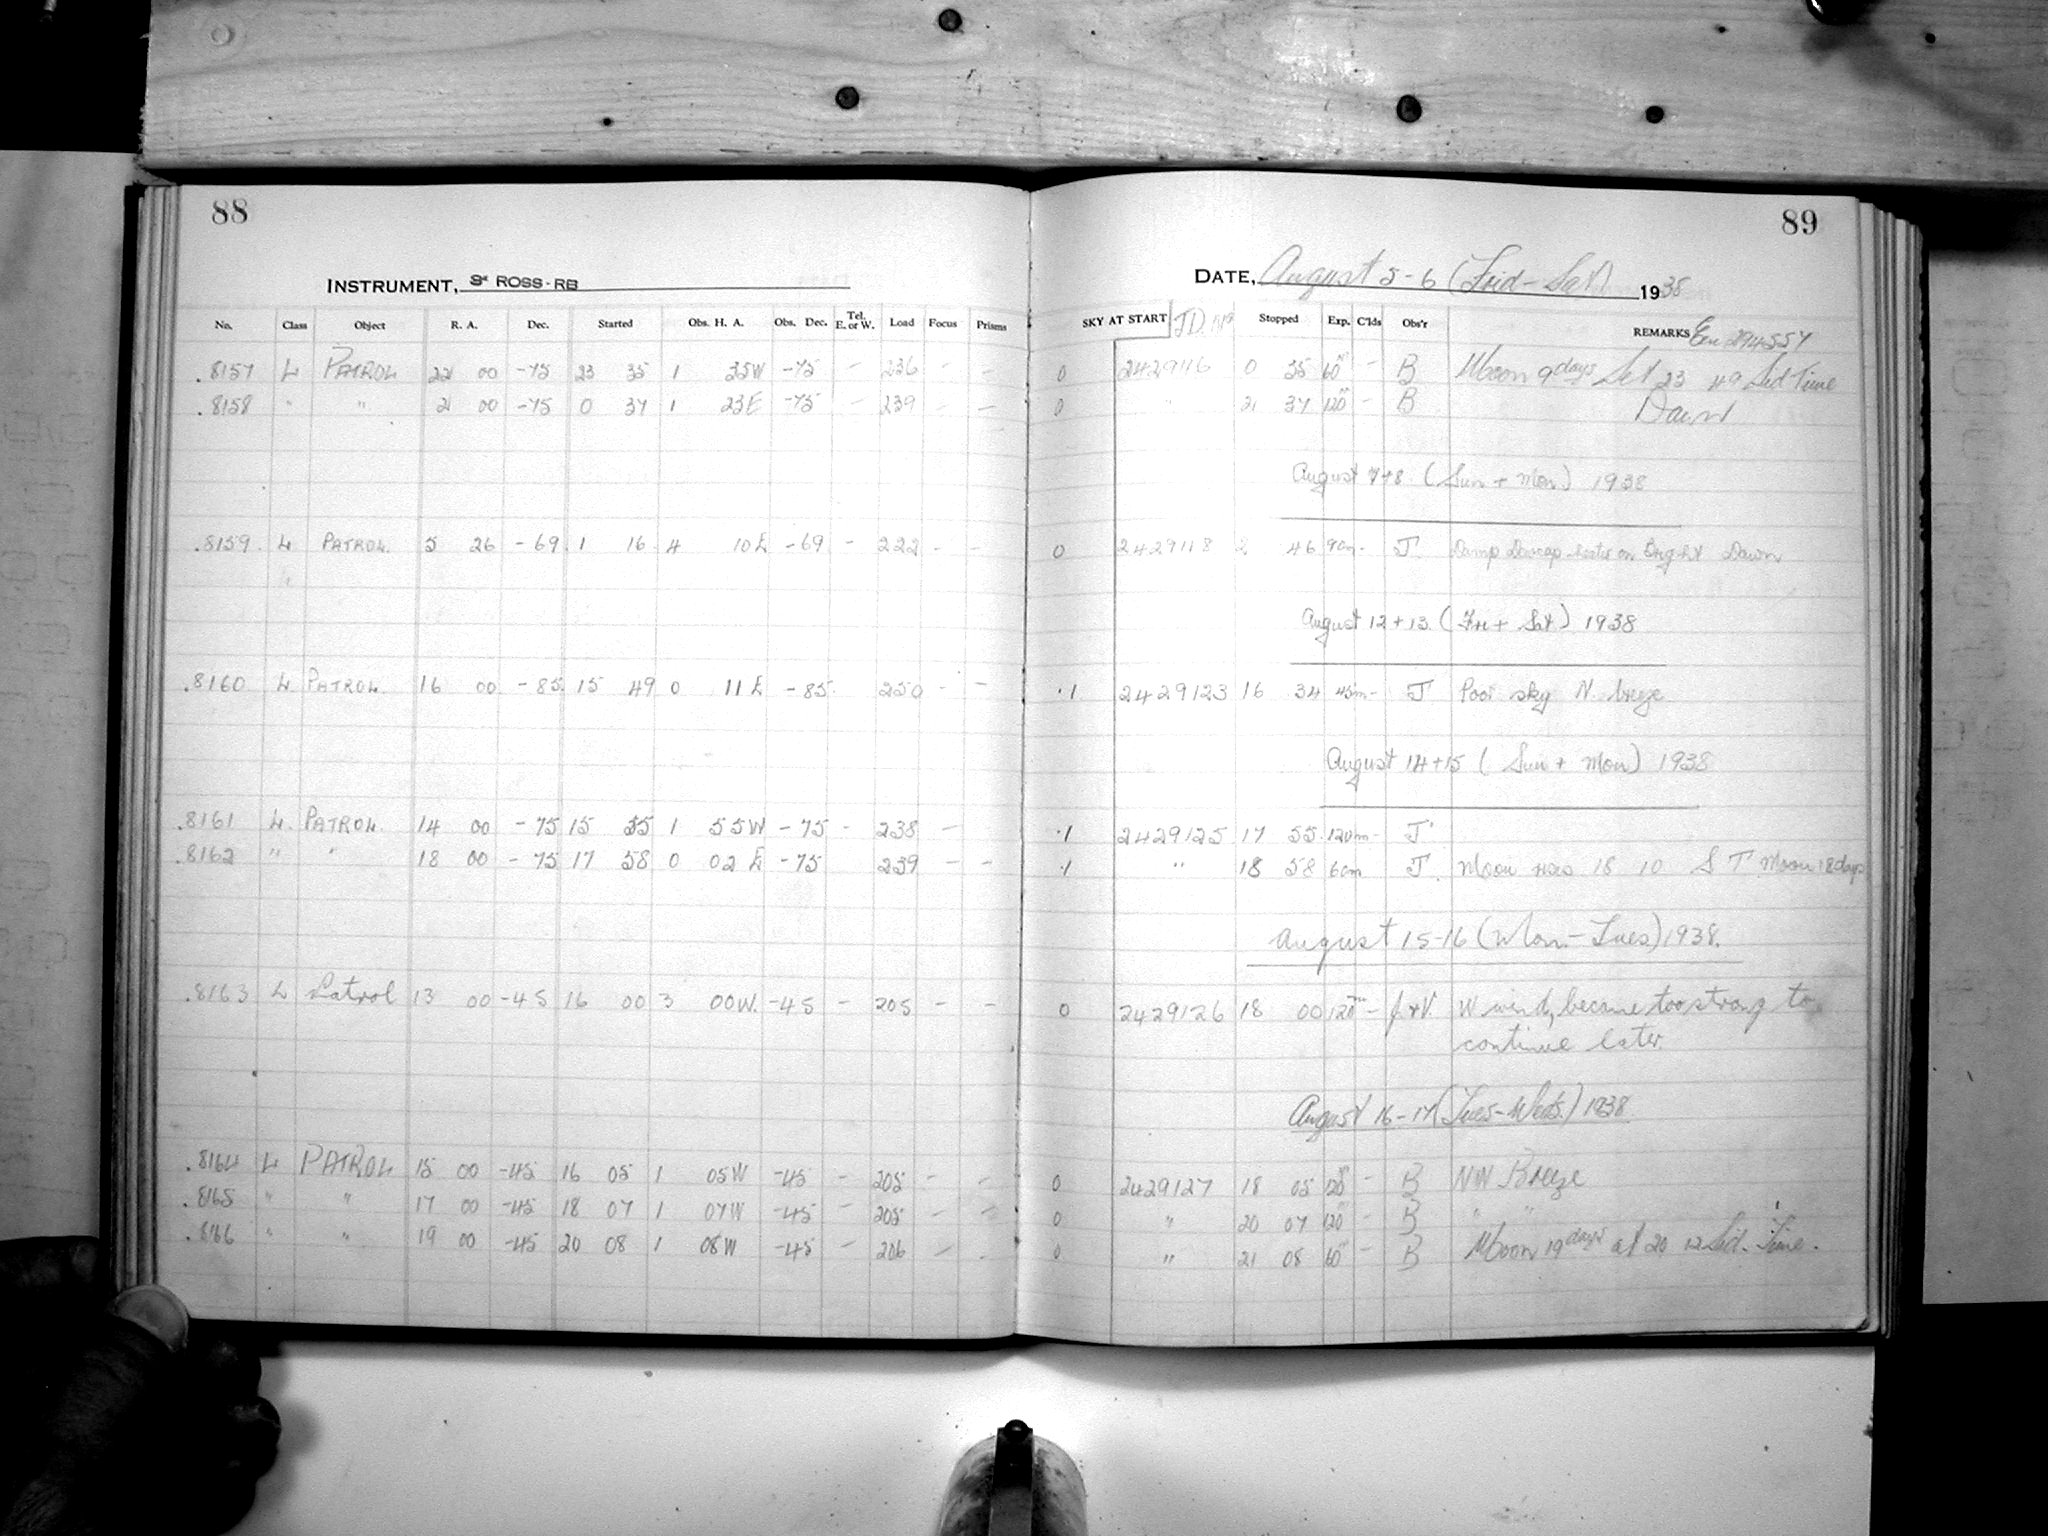 88
INSTRUMENT, ROSS-RB
No. Class Object R. A. Dec. Started Obs. H. A. Obs. Dec. Tel. E. or W. Load Focus Prisms
.8157 L PATROL 22 00 -75 23 35 1 35W -75 - 236 - -
.8158 " " 21 00 -75 0 37 1 23E -75 - 239 - -
.8159. L PATROL. 5 26 -69. 1 16 4 10E -69 - 222 - -
"
.8160 L PATROL 16 00 -85. 15 49 0 11E -85. 250 - -
.8161 L. PATROL. 14 00 -75 15 55 1 55W -75 - 238 -
.8162 " " 18 00 -75 17 58 0 02E -75 239 - -
.8163 L Patrol 13 00 -45 16 00 3 00W. -45 - 205 - -
.8164 L PATROL 15 00 -45 16 05 1 05W -45 - 205 - -
.8165 " " 17 00 -45 18 07 1 07W -45 - 205 - -
.8166 " " 19 00 -45 20 08 1 08W -45 - 206 - -
89
DATE, August 5-6 (Frid-Sat) 1938
SKY AT START J.D. Stopped Exp. C'lds Obs'r REMARKS
0 2429116 0 35 60m - B Moon 9days Set 23 49 Sid Time
0 " 21 37 120m - B Dawn
August 7+8. (Sun + Mon) 1938
0 2429118 2 46 90m - J. Damp Dewcap heater on Bright Dawn
August 12+13. (Fri + Sat) 1938
.1 2429123 16 34 45m - J Poor sky N. breeze
August 14+15 (Sun + Mon) 1938
.1 2429125 17 55. 120m - J
.1 " 18 58 60m J. Moon rises 18 10 S T Moon 18days
August 15-16 (Mon.-Tues) 1938.
0 2429126 18 00 120m - J.+V. W wind, became too strong to
continue later.
August 16-17 (Tues-Weds.) 1938
0 2429127 18 05 120m - B NW Breeze
0 " 20 07 120m - B " "
0 " 21 08 60m - B Moon 19days at 20 12 Sid. Time.